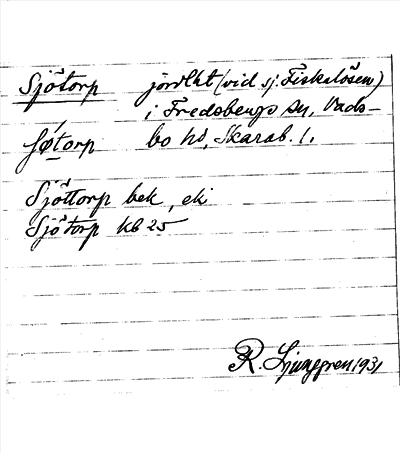 Sjötorp jordlht (vid sj. Fiskelösen)
i Fredsbergs sn, Vads-
bo hd, Skarab. l.
ʃøtorp
Sjöttorp bek, ek
Sjötorp kb 25
R. Ljunggren 1931